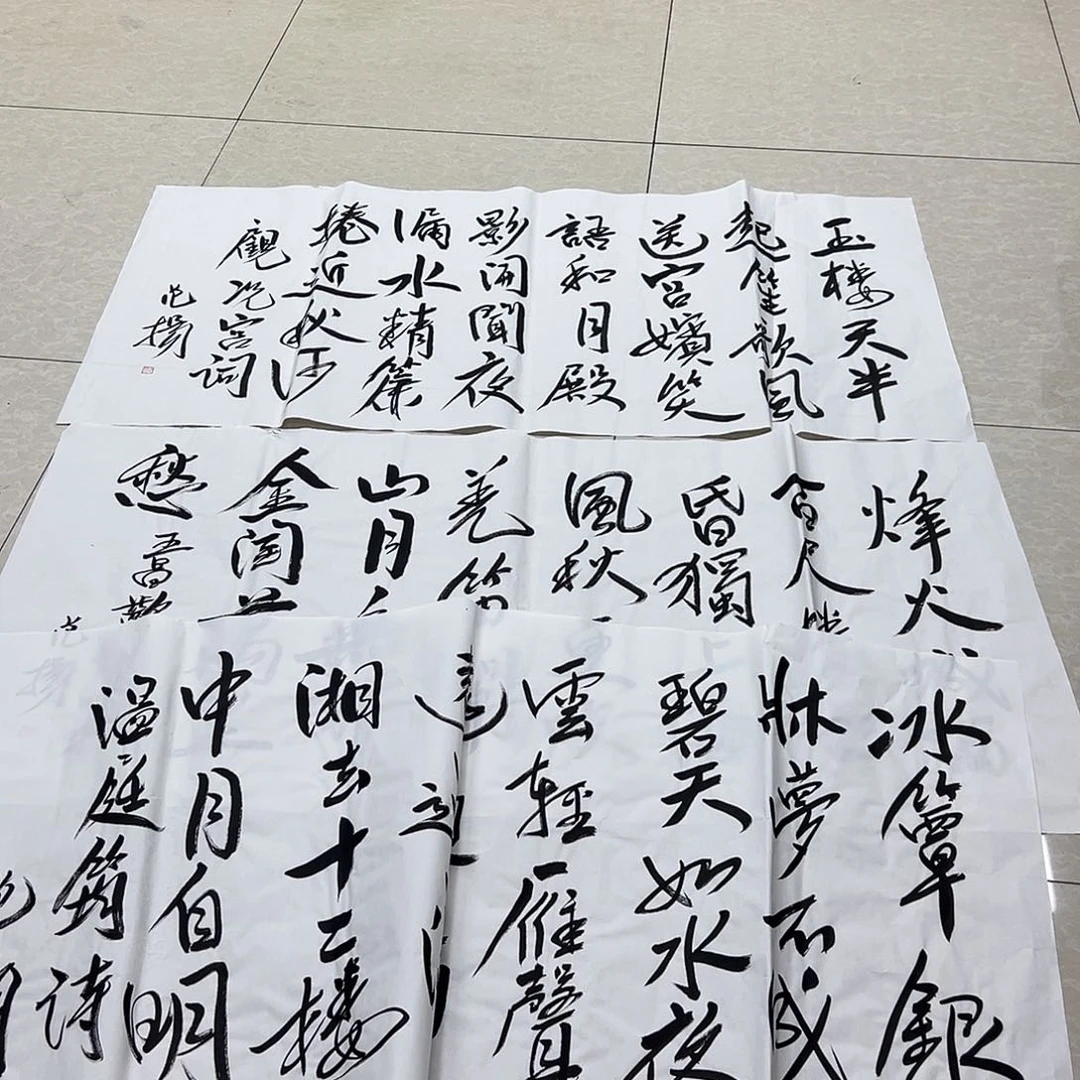 玉楼天半
起笙歌風
送宫嬪笑
語和月殿
影開聞夜
漏水精簾
捲近秋河
顧况宫词
范揚
烽火
百尺
昏獨
風秋
羌笛
山月
金閨
愁
昌齡
范揚
冰簟銀
牀夢不成
碧天如水夜
雲輕雁聲
遠過
湘去十二楼
中月自明
温庭筠詩